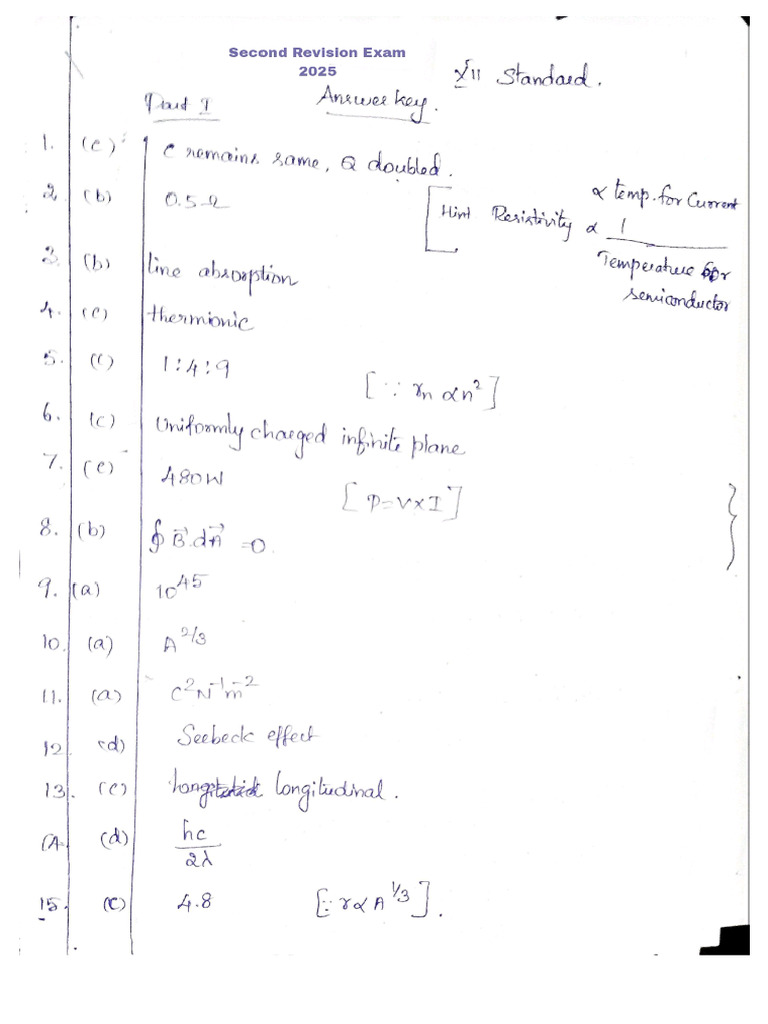 Second Revision Exam
2025
XII Standard.
Part I
Answer key.
1. (c) C remains same, Q doubled.
2. (b) 0.5 Ω
[Hint Resistivity α 1 / Temperature for semiconductor
α temp. for Current
3. (b) line absorption
4. (c) thermionic
5. (c) 1:4:9 [∵ rn αn²]
6. (c) Uniformly charged infinite plane
7. (c) 480W [P=V×I]
8. (b) ∮ B⃗.dA⃗ =0
9. (a) 10⁴⁵
10. (a) A²/³
11. (a) C²N⁻¹m⁻²
12. (d) Seebeck effect
13. (c) longitudinal.
14. (d) hc / 2λ
15. (c) 4.8 [∵ r α A¹/³].